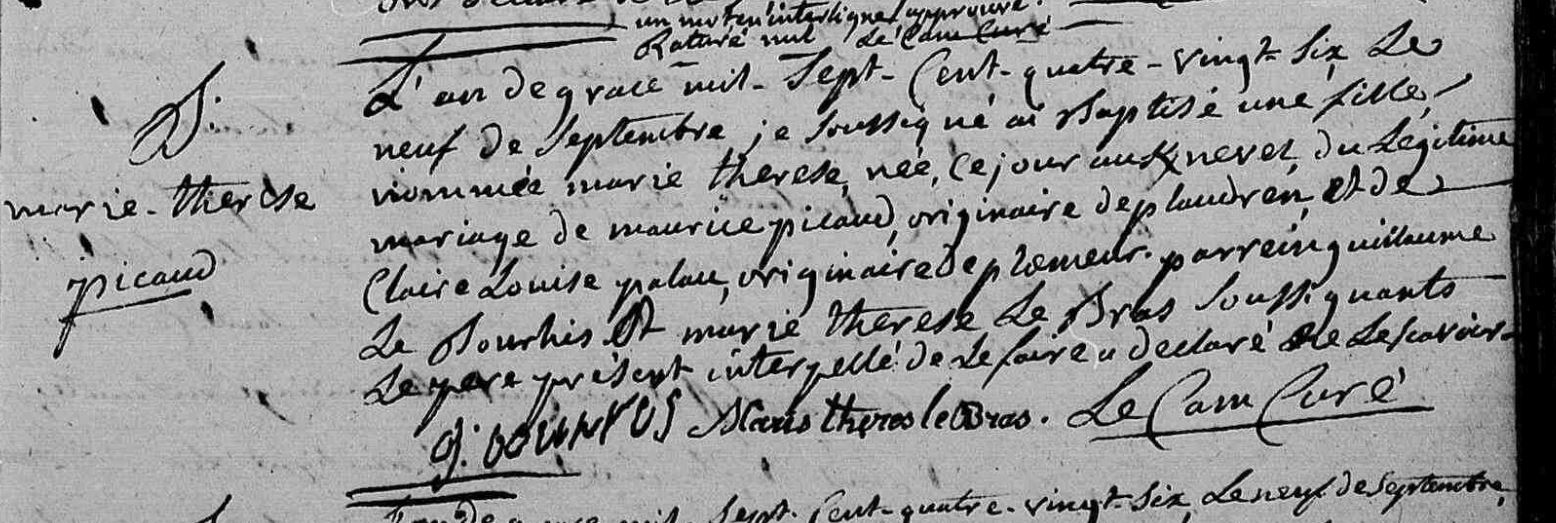 un mot en interligne approuvé.
Raturé nul Le Cam Curé
B.
marie-therese
picaud
L'an de grace mil-Sept-Cent-quatre-vingt-Six Le
neuf de Septembre, je Soussigné ai Baptisé une fille,
nommée marie therese, née, Ce jour au Knevel du Legitime
mariage de maurice picaud, originaire de plaudren, et de
Claire Louise palau, originaire de plœmeur. parrein guillaume
Le Bourhis Et marie therese Le Bras Soussignants
Le pere présent interpellé de Le faire a declaré ne Le sçavoir
g: bourhis Marie theres le Bras. Le Cam Curé
L'an de grace mil Sept-Cent-quatre-vingt-Six, Le neuf de Septembre,